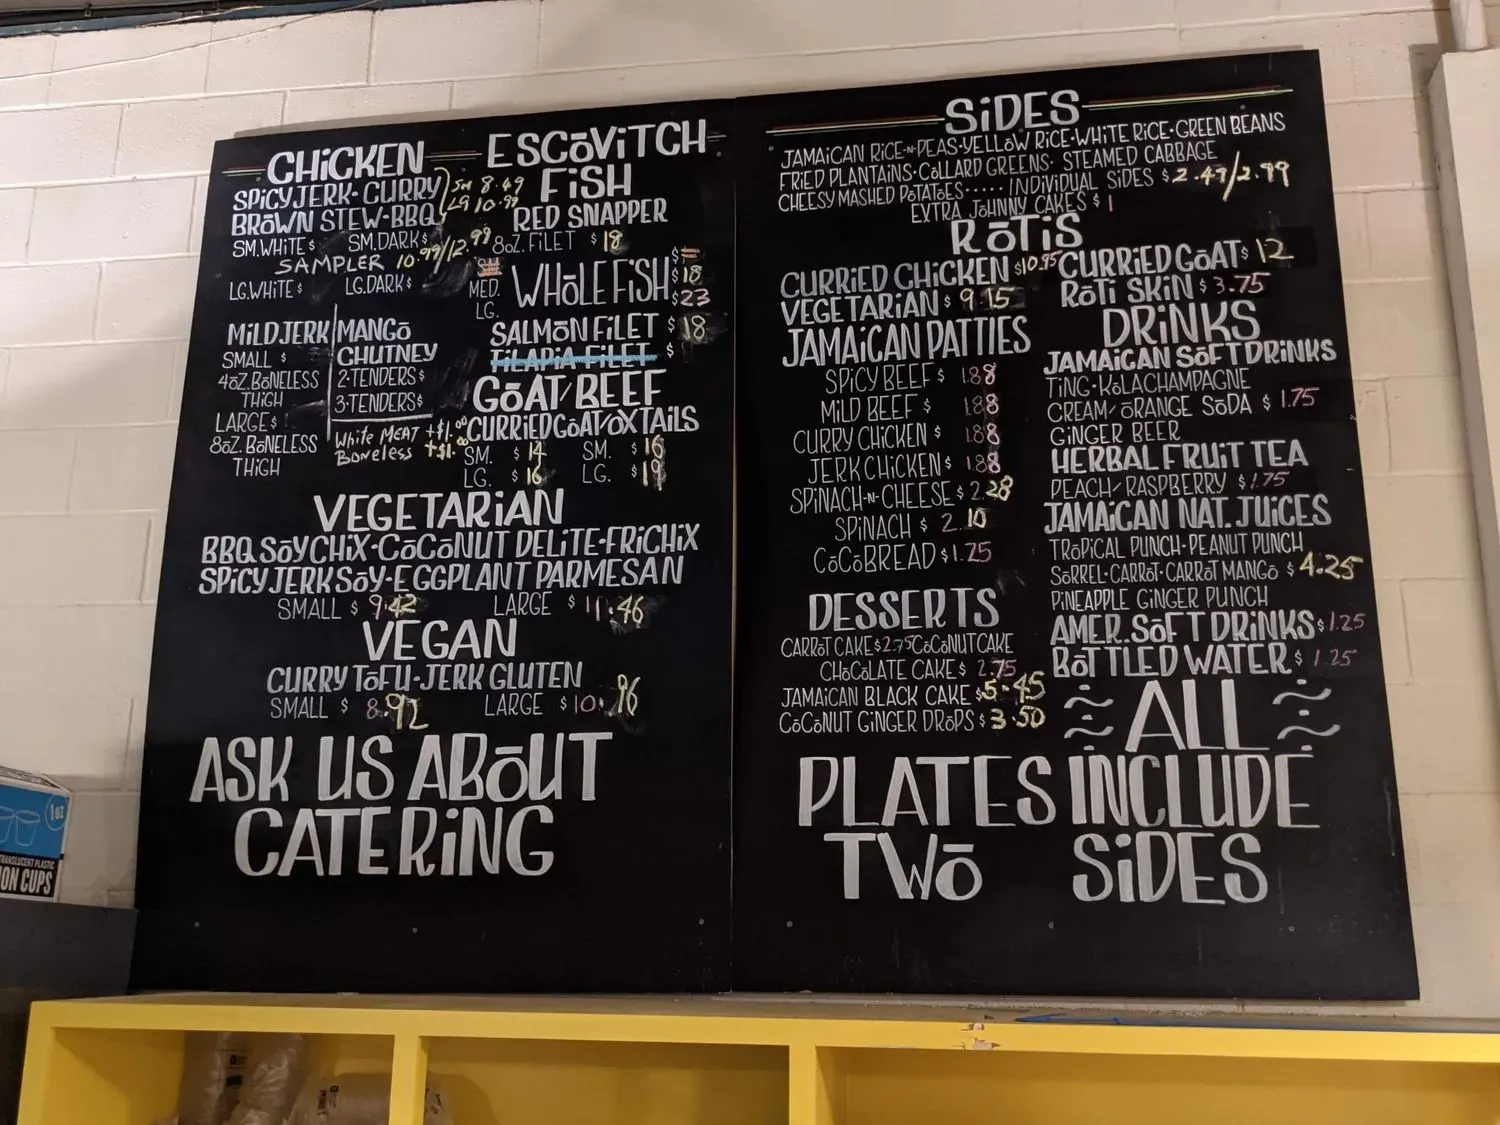 CHiCKEN
SPiCY JERK · CURRY
BROWN STEW · BBQ
SM 8.49
LG 10.99
SM. WHITE $ SM. DARK $
SAMPLER 10.99/12.99
LG. WHITE $ LG. DARK $
MiLD JERK
SMALL $
4OZ. BONELESS
THIGH
LARGE $
8OZ. BONELESS
THIGH
MANGO
CHUTNEY
2-TENDERS $
3-TENDERS $
White MEAT +$1.00
Boneless +$1.00
ESCOViTCH
FiSH
RED SNAPPER
8OZ. FiLET $ 18
SM $
MED. WHOLE FiSH $ 18
LG. $ 23
SALMON FiLET $ 18
TILAPIA FILET $
GOAT/BEEF
CURRiED GOAT/OX TAILS
SM. $ 14 SM. $ 16
LG. $ 16 LG. $ 19
VEGETARiAN
BBQ SOY CHiX · COCONUT DELITE · FRiCHiX
SPiCY JERK SOY · EGGPLANT PARMESAN
SMALL $ 9.42 LARGE $ 11.46
VEGAN
CURRY TOFU · JERK GLUTEN
SMALL $ 8.92 LARGE $ 10.96
ASK US ABOUT
CATERiNG
SiDES
JAMAiCAN RiCE-N-PEAS · YELLOW RiCE · WHiTE RiCE · GREEN BEANS
FRiED PLANTAiNS · COLLARD GREENS · STEAMED CABBAGE
CHEESY MASHED POTATOES ..... INDiViDUAL SiDES $ 2.49/2.99
EXTRA JOHNNY CAKES $ 1
ROTiS
CURRiED CHiCKEN $ 10.95
VEGETARiAN $ 9.15
CURRiED GOAT $ 12
ROTi SKiN $ 3.75
JAMAiCAN PATTiES
SPiCY BEEF $ 1.88
MiLD BEEF $ 1.88
CURRY CHiCKEN $ 1.88
JERK CHiCKEN $ 1.88
SPiNACH-N-CHEESE $ 2.28
SPiNACH $ 2.10
COCOBREAD $ 1.25
DESSERTS
CARROT CAKE $ 2.75 COCONUT CAKE
CHOCOLATE CAKE $ 2.75
JAMAiCAN BLACK CAKE $ 5.45
COCONUT GiNGER DROPS $ 3.50
DRiNKS
JAMAiCAN SOFT DRiNKS
TiNG · KOLA CHAMPAGNE
CREAM/ORANGE SODA $ 1.75
GiNGER BEER
HERBAL FRUiT TEA
PEACH/RASPBERRY $ 1.75
JAMAiCAN NAT. JUiCES
TROPiCAL PUNCH · PEANUT PUNCH
SORREL · CARROT · CARROT MANGO $ 4.25
PiNEAPPLE GiNGER PUNCH
AMER. SOFT DRiNKS $ 1.25
BOTTLED WATER $ 1.25
ALL
PLATES INCLUDE
TWO SiDES
1oz
TRANSLUCENT PLASTIC
ION CUPS